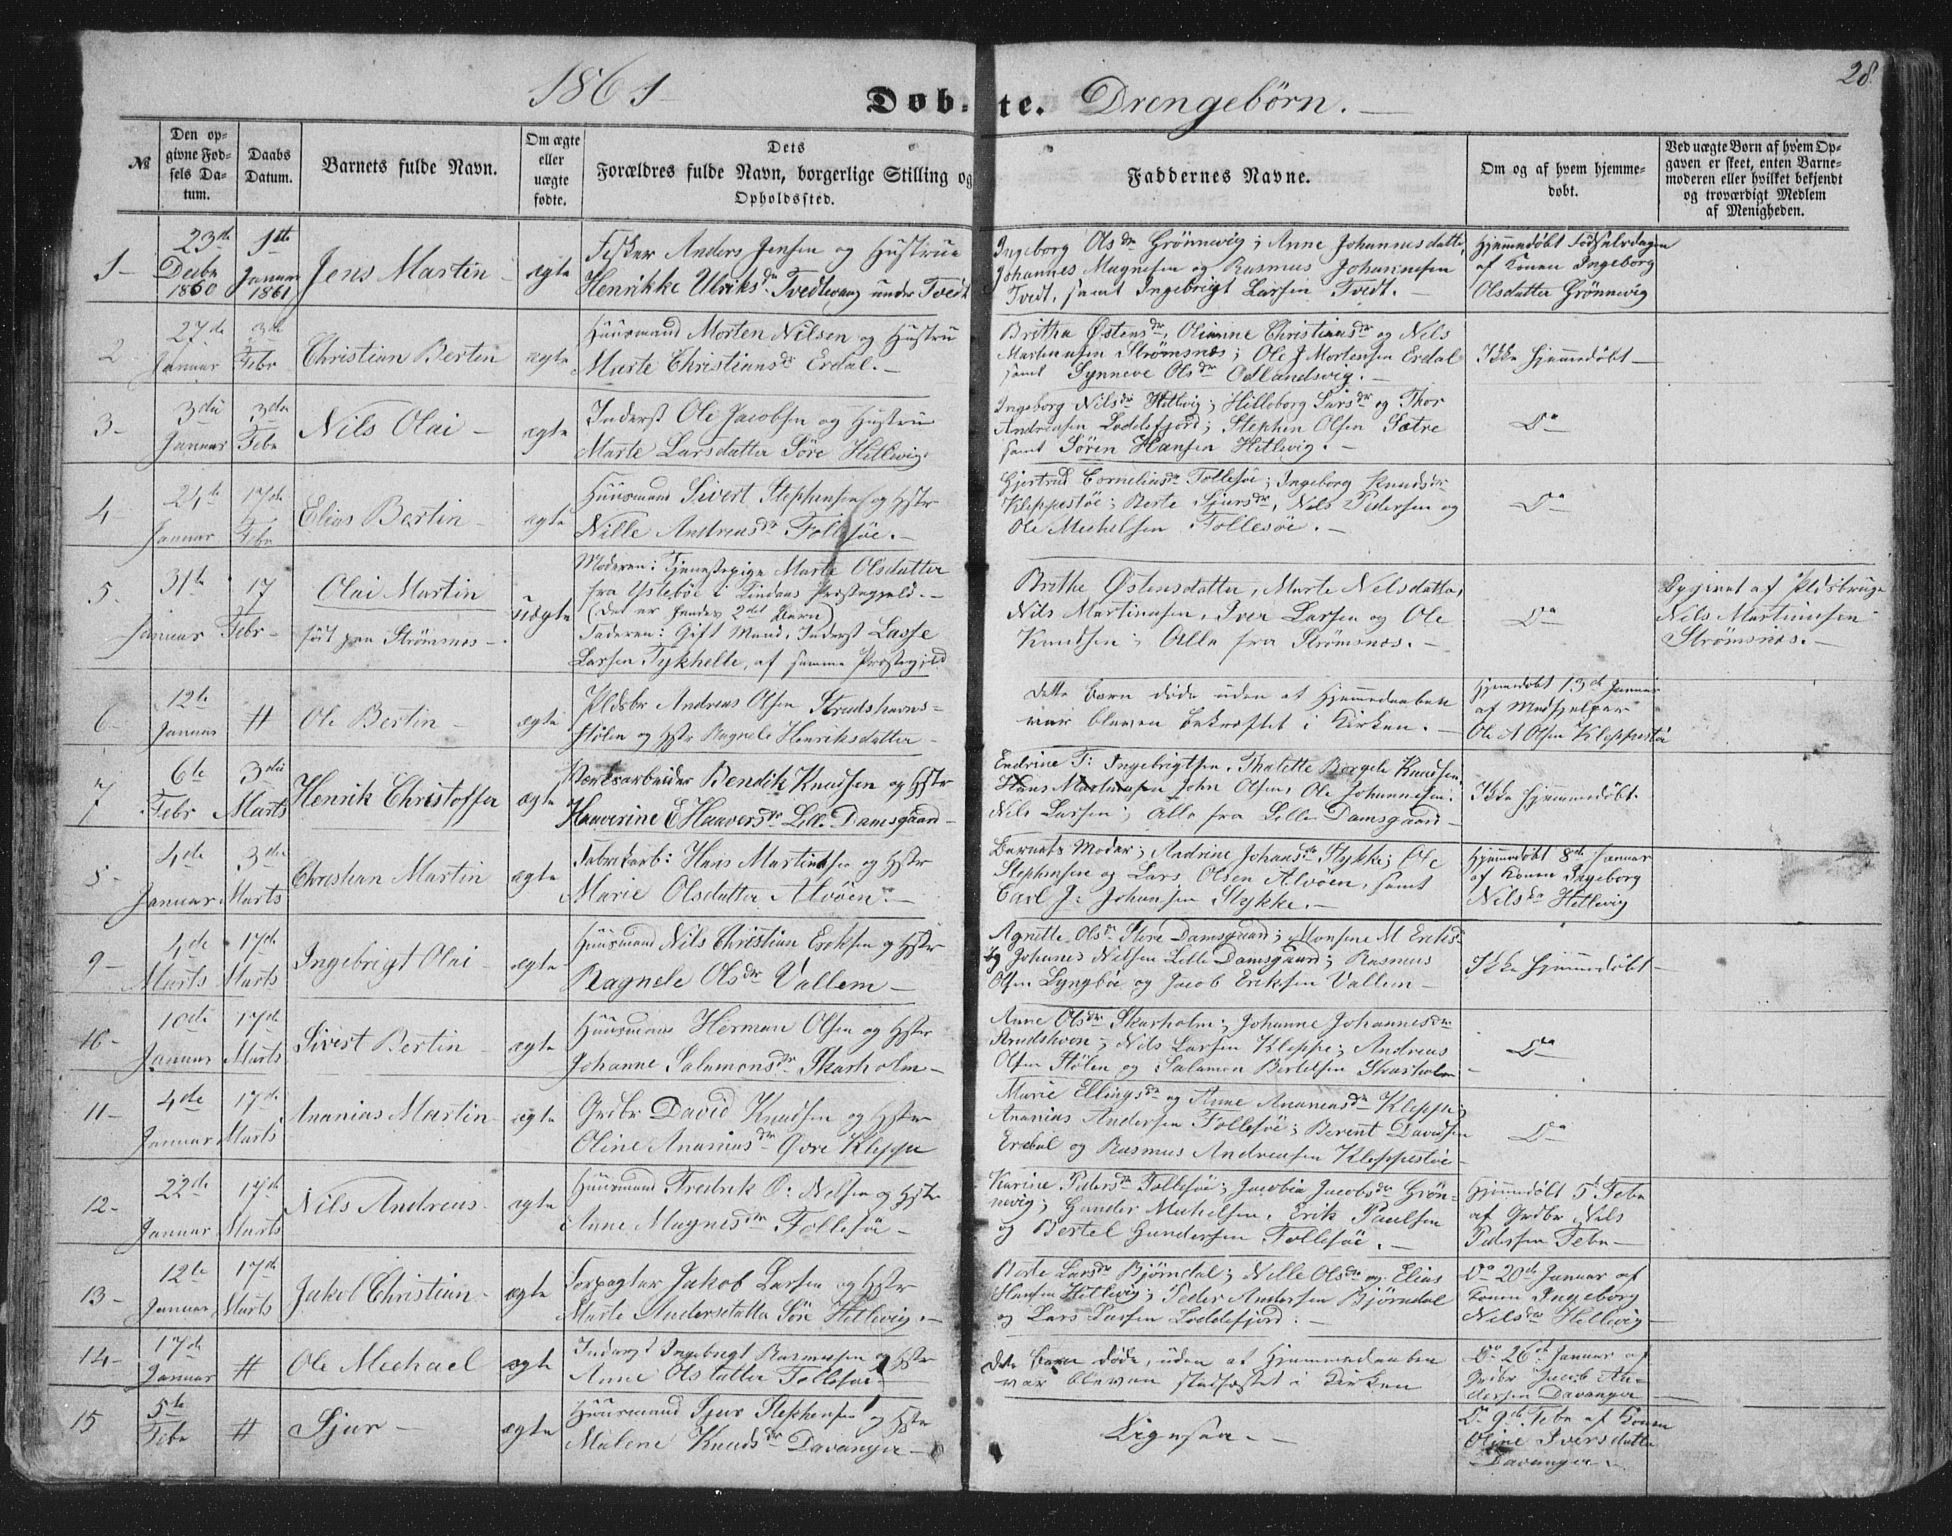 1861
Døbte. Drengebørn.
28.
№
Den opgivne Fødsels Datum.
Daabs Datum.
Barnets fulde Navn.
Om ægte eller uægte fødte.
Dets Forældres fulde Navn, borgerlige Stilling og Opholdssted.
Faddernes Navne.
Om og af hvem hjemmedøbt.
Ved uægte Børn af hvem Opgaven er skeet, enten Barnemoderen eller hvilket bekjendt og troværdigt Medlem af Menigheden.
1 23de Decbr 1860 1ste Januar 1861 Jens Martin ægte
Fisker Anders Jensen og Hustrue
Henrikke Ulriksdr Tvedtevang under Tvedt
Ingeborg Olsdr Grönnevig; Anne Johannesdatter,
Johannes Magnesen og Rasmus Johannesen
Tvedt, samt Ingebrigt Larsen Tvedt.
Hjemmedøbt Fødselsdagen
af Konen Ingeborg
Olsdatter Grönnevig
2 27de Januar 3de Febr Christian Bertin ægte
Huusmand Morten Nilsen og Hustru
Marte Christiansdr Erdal.
Britha Østensdr, Olianne Christiansdr og Nils
Martinusen Strømsnæs; Ole J Mortensen Erdal
samt Synneve Olsdr Odlandsvig.
Ikke hjemmedøbt
3 3die Januar 3die Febr Nils Olai ægte
Inderst Ole Jacobsen og Hustrue
Marte Larsdatter Söre Hetlevig.
Ingeborg Nilsdr Hetlevig; Hilleborg Larsdr og Thor
Andreasen Loddefjord; Stephen Olsen Sætre
samt Sören Hansen Hetlevig.
Do
4 24de Januar 17de Febr Elias Bertin ægte
Huusmand Sivert Stephensen og Hstr
Nille Andreasdr Follesöe.
Gjertrud Corneliusdr Follesöe; Ingeborg Knudsdr
Kleppestöe; Berte Sjursdr, Nils Pedersen og
Ole Michelsen Follesöe.
Do
5 31te Januar 17 Febr Olai Martin
født paa Strömsnes
uægte
Moderen: Tjenestepige Marte Olsdatter
fra Ystebøe i Lindaas Præstegjeld.
(Det er hendes 2det Barn)
Faderen: Gift Mand, Inderst Lasse
Larsen Tykhelle, af samme Præstegjeld
Brithe Østensdatter, Marte Nilsdatter,
Nils Martinusen, Iver Larsen og Ole
Knudsen; Alle fra Strömsnæs.
Do
Opgivet af Pldsbruger
Nils Martinusen
Strömsnæs.
6 12te Januar # Ole Bertin ægte
Pldsbr Andreas Olsen Strudshavns-
stølen og Hstr Ragnele Henriksdatter
Dette Barn døde uden at Hjemmedaaben
var bleven bekræftet i Kirken.
Hjemmedöbt 13de Januar
af Medhjelper
Ole N Olsen Kleppestøe
7 6te Febr 3die Marts Henrik Christoffer ægte
Værksarbeider Bendik Knudsen og Hstr
Haaverine E Haaversdr Lille Damsgaard
Endrine T: Ingebrigtsen, Thalette Bergele Knudsen,
Hans Martinusen John Olsen, Ole Johannesen,
Nils Larsen; Alle fra Lille Damsgaard
Ikke hjemmedøbt.
8 4de Januar 3die Marts Christian Martin ægte
Fabrikarb: Hans Martinusen og Hstr
Marie Olsdatter Alvöen.
Barnets Moder; Andrine Johansdr Stykke; Ole
Stephensen og Lars Olsen Alvöen, samt
Carl J: Johansen Stykke.
Hjemmedøbt 8de Januar
af Konen Ingeborg
Nilsdr Hetlevig
9 4de Marts 17de Marts Ingebrigt Olai ægte
Huusmand Nils Christian Eriksen og Hstr
Ragnele Olsdr Vallem
Agnette Olsdr Store Damsgaard; Monsine M Eriks-
og Johanes Nilsen Lille Damsgaard; Rasmus
Olsen Lyngbøe og Jacob Eriksen Vallem
Ikke hjemmedøbt
10 10de Januar 17de Marts Sivert Bertin ægte
Huusmand Herman Olsen og Hstr
Johanne Salamonsdr Skarholm
Anne Olsdr Skarholm; Johanne Johannesdr
Strudshavn; Nils Larsen Kleppe; Andreas
Olsen Stølen og Salamon Bertelsen Skarholm
Do
11 4de Januar 17de Marts Ananias Martin ægte
Grdbr David Knudsen og Hstr
Oline Ananiasdr Øvre Kleppe
Marie Ellingsdr og Anne Ananiasdr Kleppe;
Ananias Andersen Follesöe; Berent Davidsen
Erdal og Rasmus Andreasen Kleppestöe
Do
12 22de Januar 17de Marts Nils Andreas ægte
Huusmand Fredrik O: Nilsen og Hstr
Anne Magnesdr Follesöe
Karine Pedersdr Follesöe; Jacobia Jacobsdr Grön-
nevig; Gunder Michelsen, Erik Paulsen
og Bertel Gundersen Follesöe.
Hjemmedøbt 5 Febr
af Grdbr Nils
Pedersen Febr
13 12te Januar 17de Marts Jakob Christian ægte
Forpagter Jakob Larsen og Hstr
Marte Andersdatter Söre Hetlevig.
Berte Larsdr Bjørndal; Nille Olsdr og Elias
Hansen Hetlevig; Peder Andersen Bjørndal
og Lars Larsen Loddefjord.
Do 20de Januar af
Konen Ingeborg
Nilsdr Hetlevig
14 17de Januar # Ole Michael ægte
Inderst Ingebrigt Rasmusen og Hstr
Anne Olsdatter Follesöe
Dette Barn døde, uden at Hjemmedaaben
var bleven stadfæstet i Kirken
Do 26de Januar af
Grdbr Jacob An-
dersen Davanger
15 5te Febr # Sjur ægte
Huusmand Sjur Stephensen og Hstr
Malene Knudsdr Davanger
Ligesaa.
Do 9de Febr af Konen
Oline Iversdatter
Davanger